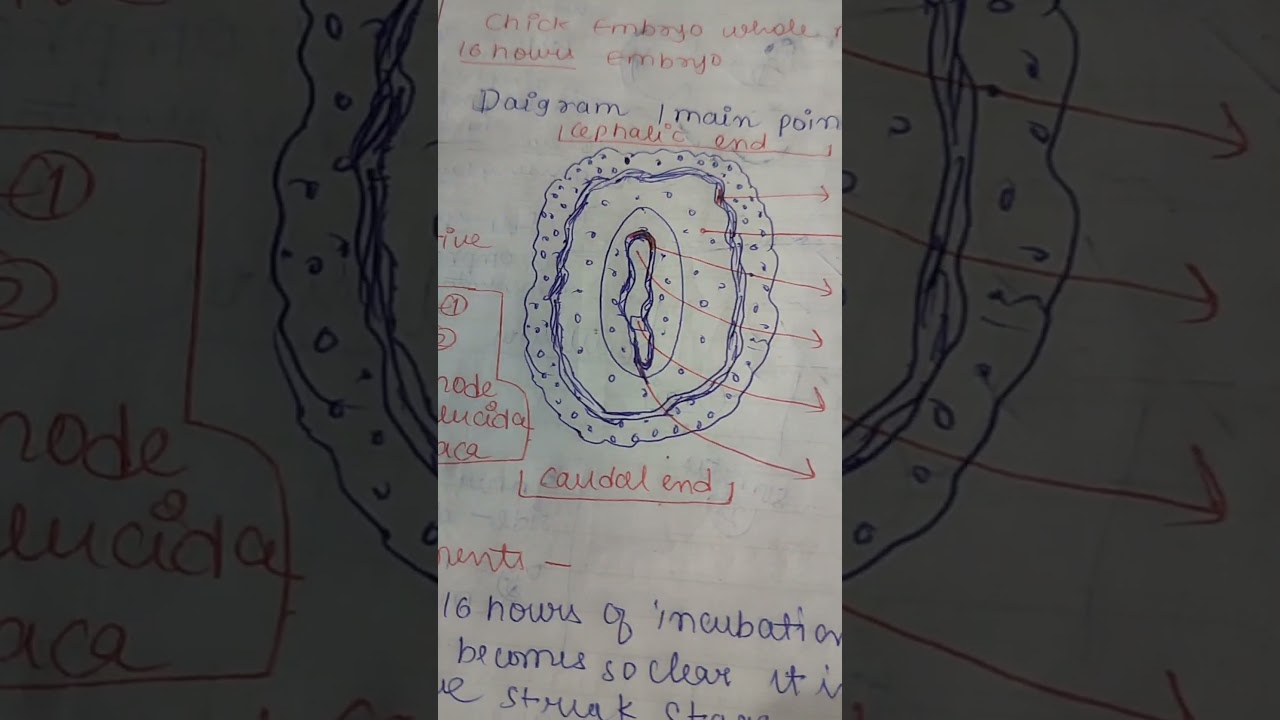 Chick Embryo whole
16 hours embryo
Daigram / main poin
cephalic end
tive
1
2
node
lucida
aca
caudal end
ments –
16 hours of incubation
becomes so clear it i
ve streak stage